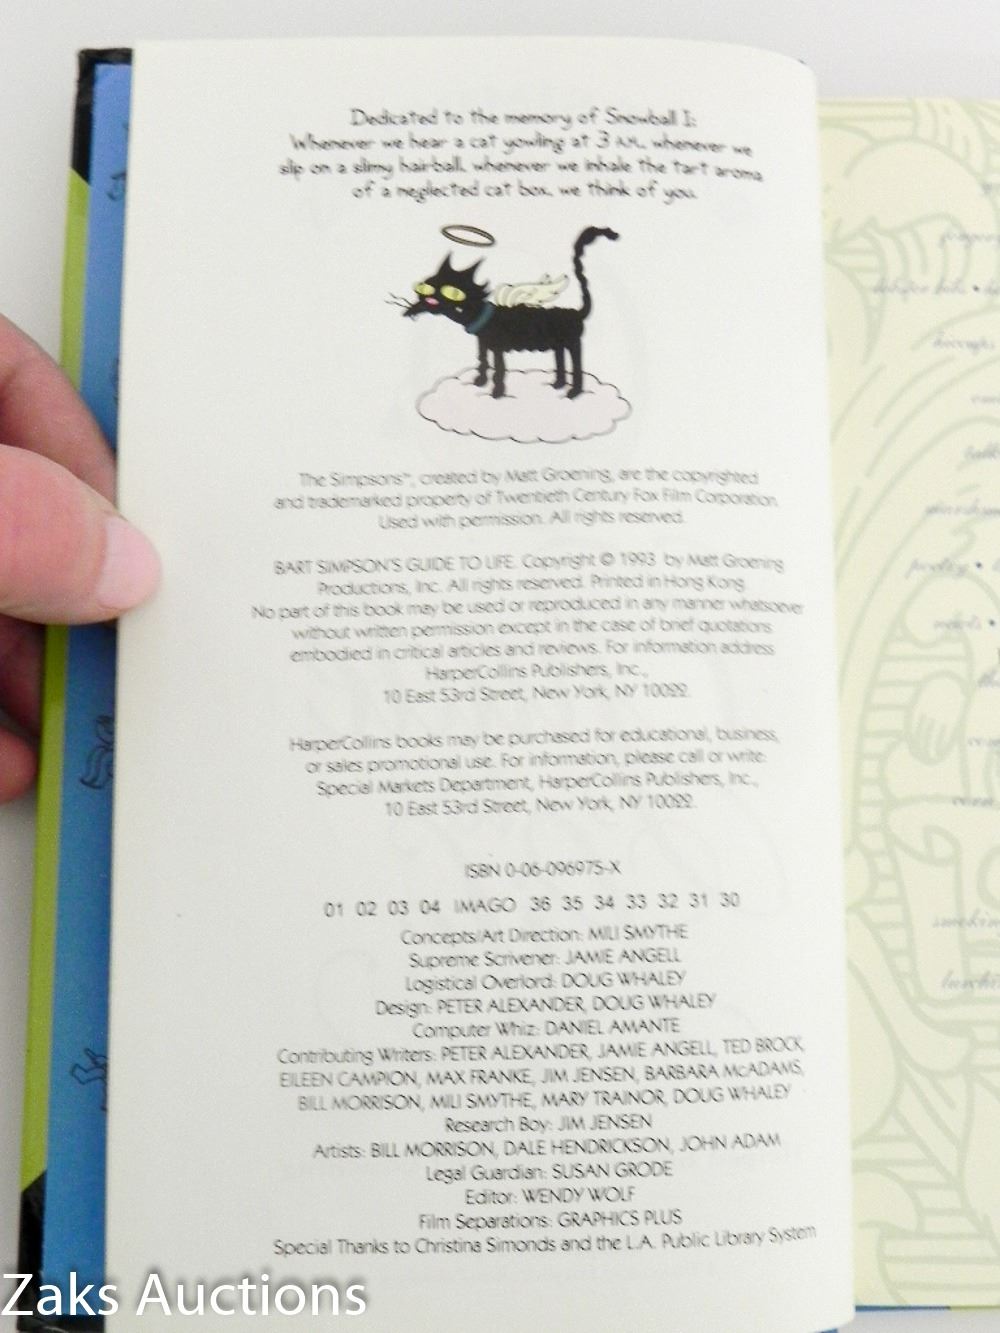 Dedicated to the memory of Snowball I:
Whenever we hear a cat yowling at 3 A.M., whenever we
slip on a slimy hairball, whenever we inhale the tart aroma
of a neglected cat box, we think of you.
The Simpsons™, created by Matt Groening, are the copyrighted
and trademarked property of Twentieth Century Fox Film Corporation.
Used with permission. All rights reserved.
BART SIMPSON'S GUIDE TO LIFE. Copyright © 1993 by Matt Groening
Productions, Inc. All rights reserved. Printed in Hong Kong.
No part of this book may be used or reproduced in any manner whatsoever
without written permission except in the case of brief quotations
embodied in critical articles and reviews. For information address
HarperCollins Publishers, Inc.,
10 East 53rd Street, New York, NY 10022.
HarperCollins books may be purchased for educational, business,
or sales promotional use. For information, please call or write:
Special Markets Department, HarperCollins Publishers, Inc.,
10 East 53rd Street, New York, NY 10022.
ISBN 0-06-096975-X
01 02 03 04 IMAGO 36 35 34 33 32 31 30
Concepts/Art Direction: MILI SMYTHE
Supreme Scrivener: JAMIE ANGELL
Logistical Overlord: DOUG WHALEY
Design: PETER ALEXANDER, DOUG WHALEY
Computer Whiz: DANIEL AMANTE
Contributing Writers: PETER ALEXANDER, JAMIE ANGELL, TED BROCK,
EILEEN CAMPION, MAX FRANKE, JIM JENSEN, BARBARA McADAMS,
BILL MORRISON, MILI SMYTHE, MARY TRAINOR, DOUG WHALEY
Research Boy: JIM JENSEN
Artists: BILL MORRISON, DALE HENDRICKSON, JOHN ADAM
Legal Guardian: SUSAN GRODE
Editor: WENDY WOLF
Film Separations: GRAPHICS PLUS
Special Thanks to Christina Simonds and the L.A. Public Library System
Zaks Auctions